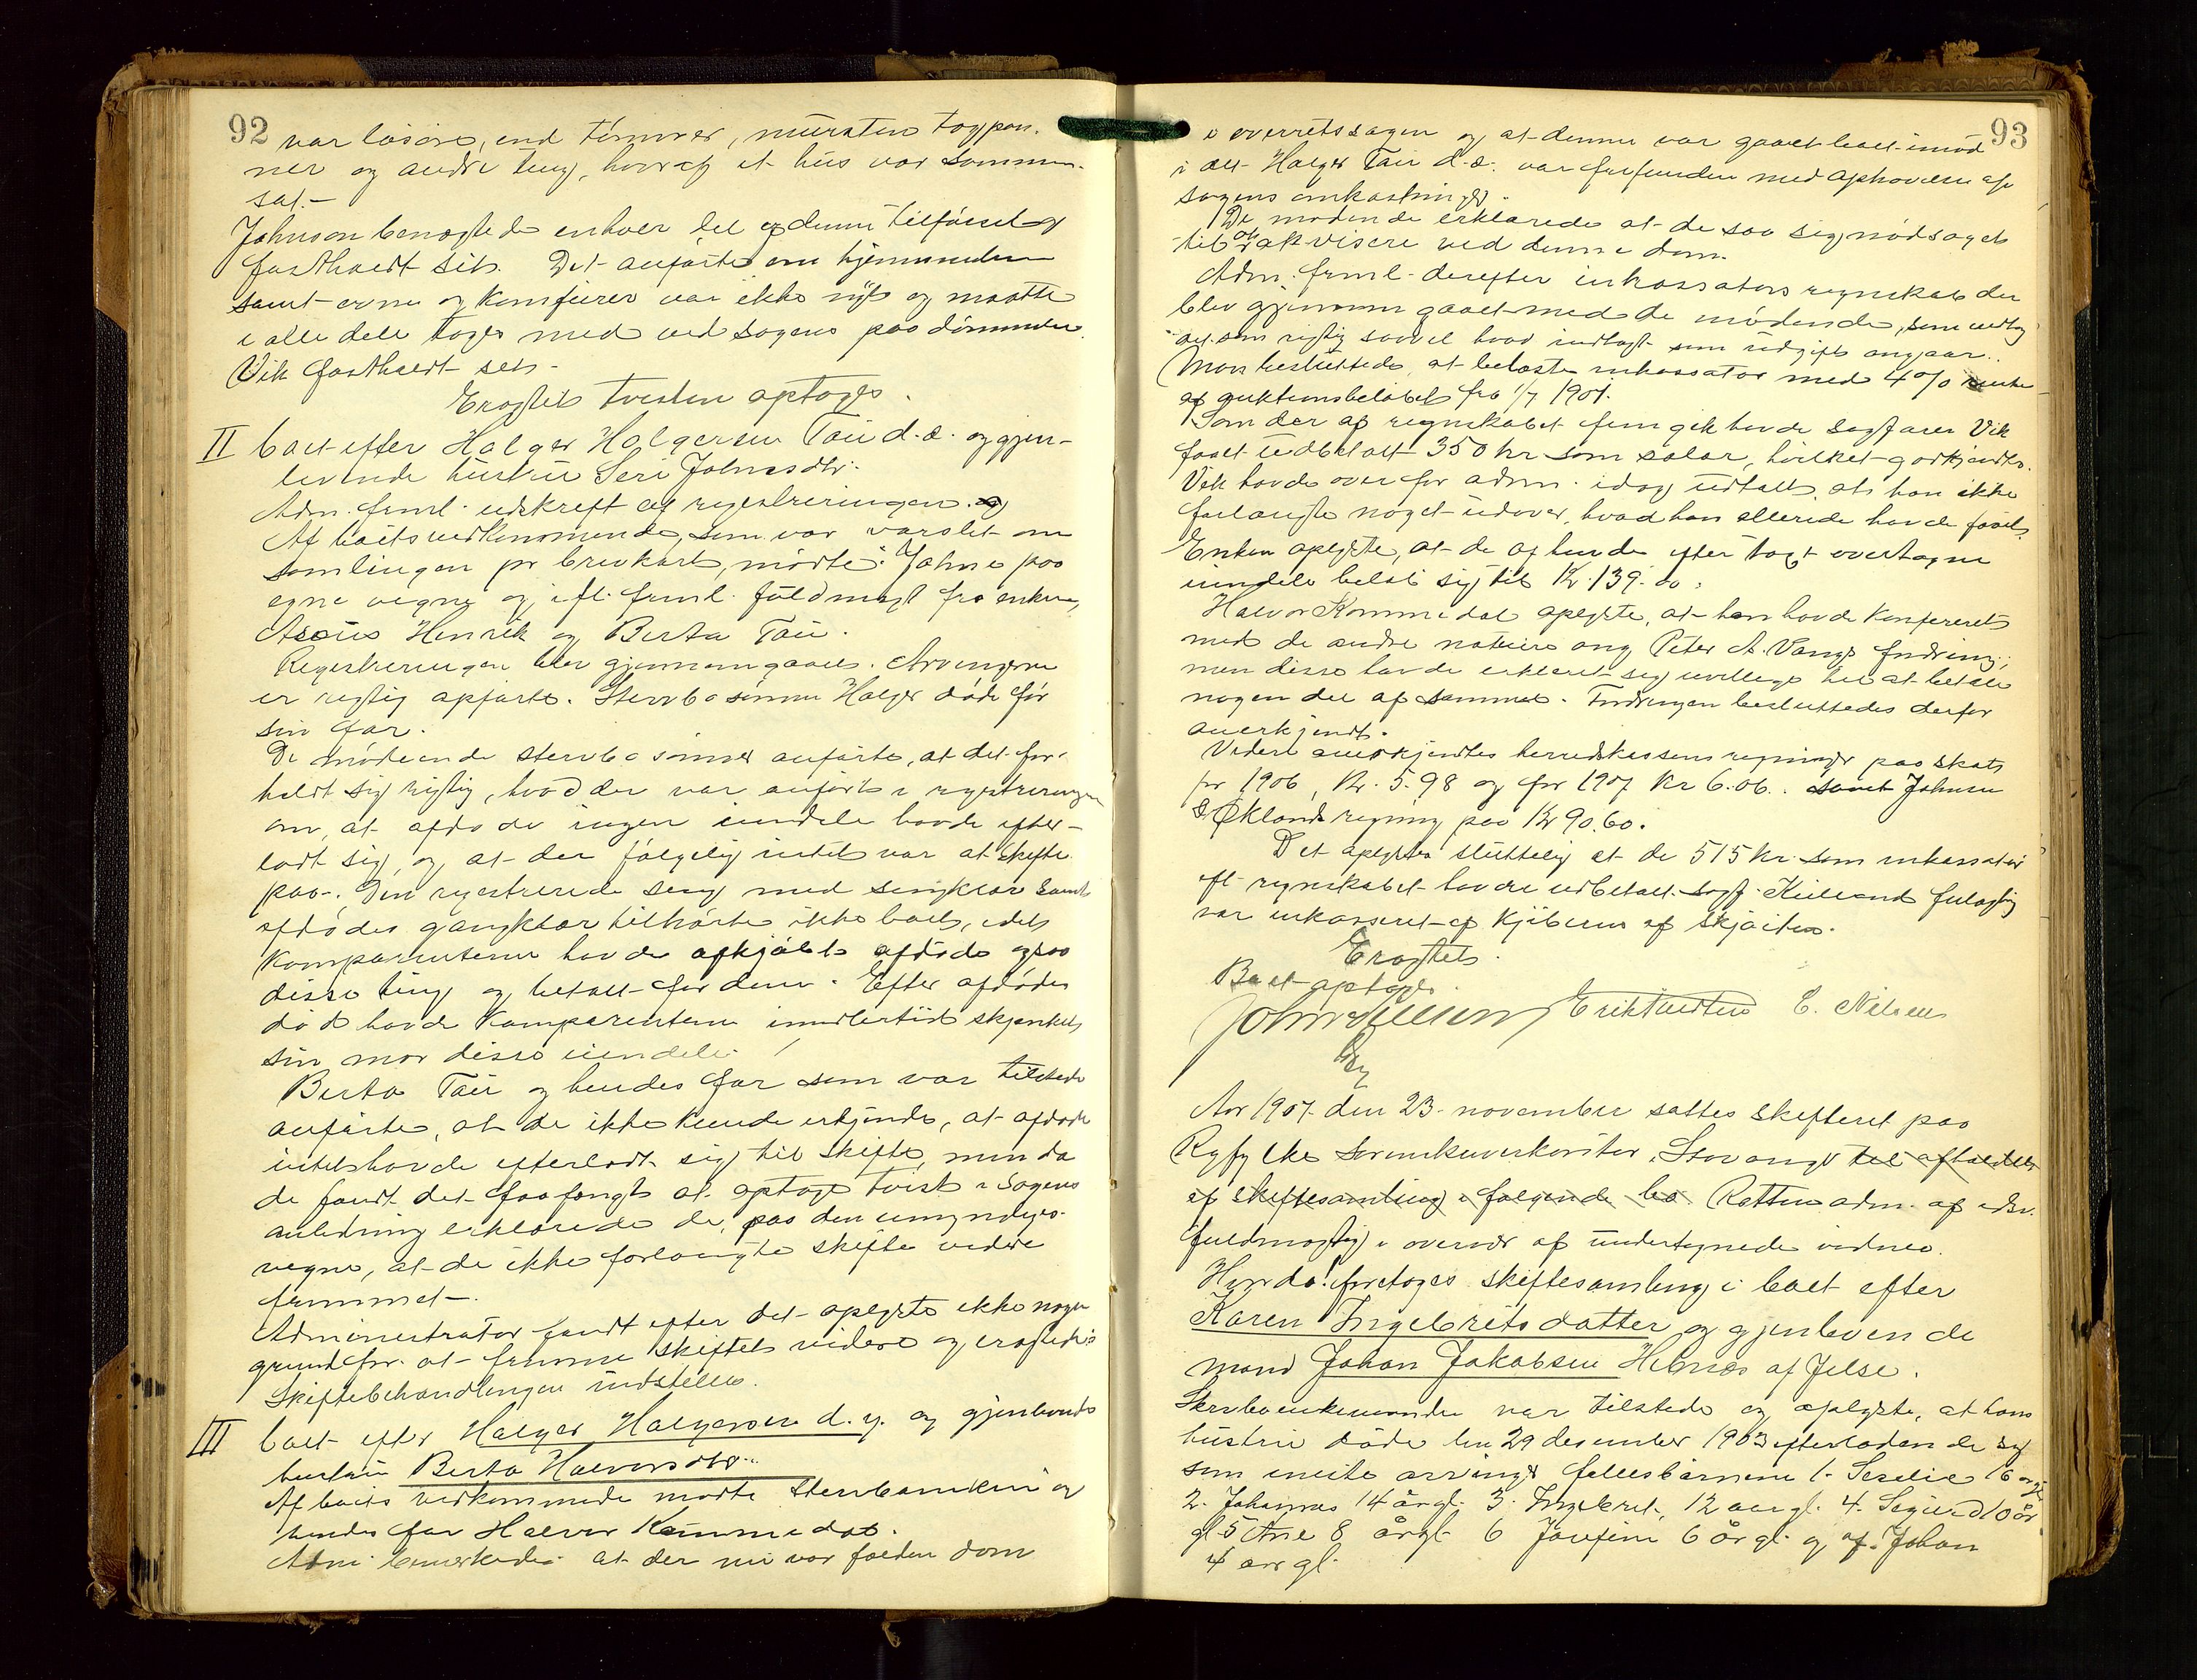 92
var løsøre, end tømmer, mursten tagpan-
ner og andre ting, hvoraf et hus var sammen-
sat.-
Johnson benægtede enhver del af denne tilførsel og
fastholdt sit. Det anførte om hjemmelen
samt ovne og komfurer var ikke nyt og maatte
i alle dele tages med ved sagens paadømmelse.
Vik fastholdt sit.-
Eragtet Tvisten optages.
II boet efter Holger Holgersen Tau d.æ. og gjen-
levende hustru Seri Johnsdtr.
Adm. freml. udskrift af registreringen. og
Af boets vedkommende, som var varslet om
samlingen pr brevkort, mødte: John paa
egne vegne og ifl. freml. fuldmagt fra enken,
Henrik og Berta Tau.
Registreringen blev gjennemgaaet. Arvingerne
er rigtig opført. Stervbosønnen Holger døde før
sin far.
De mødende stervbosønner anførte, at det for-
holdt sig rigtig, hvad der var anført i registreringen
om, at afdøde ingen eiendele havde efter-
ladt sig, og at der følgelig intet var at skifte
paa-. Den registrerede seng med sengklær samt
afdødes gangklær tilhørte ikke boet, idet
komparenterne havde afkjøbt afdøde ogsaa
disse ting og betalt for dem. Efter afdødes
død havde komparenterne imidlertid skjenket
sin mor disse eiendele.
Berta Tau og hendes far som var tilstede
anførte, at de ikke kunde erkjende, at afdøde
intet havde efterladt sig til skifte, men da
de fandt det faafengt at optage tvist i sagens
anledning erklærede de, paa den umyndiges
vegne, at de ikke forlangte skifte videre
fremmet-.
Administrator fandt efter det oplyste ikke nogen
grund for at fremme skiftet videre og eragtedes
Skiftebehandlingen indstilles.
III boet efter Holger Holgersen d.y. og gjenlevende
hustru Berta Halvorsdtr.
Af boets vedkommende mødte stervboenken og
hendes far Halvor Kommedal.
Adm. bemerkede at der nu var falden dom
93
i overretssagen og at denne var gaaet boet imod
i det Holger Tau d.æ. var frifunden med ophævelse af
sagens omkostninger.
De mødende erklærede at de saa sig nødsaget
til at akvisere ved denne dom.
Adm. freml. derefter inkassators regnskab der
blev gjennemgaaet med de mødende, som vedtog
det som rigtig saavel hvad indtægt som udgift angaar.
Man besluttede, at belaste inkassator med 4% rente
af auktionsbeløbet fra 1/7 1901.
Som der af regnskabet fremgik havde sagfører Vik
faaet udbetalt 350 kr som salær, hvilket godkjendtes.
Vik havde overfor adm. idag udtalt, at han ikke
forlangte noget udover, hvad han allerede havde faaet.
Enken oplyste, at de af hende efter taxt overtagne
eiendele beløb sig til Kr. 139.80.
Halvor Kommedal oplyste, at han havde konfereret
med de andre naboer ang Peter A. Vangs fordring;
men disse havde erklæret sig uvillige til at betale
nogen del af samme. Fordringen besluttedes derfor
anerkjendt.
Videre anerkjendtes herredskassens regninger paa skat
for 1906, Kr. 5.98 og for 1907 Kr 6.06. samt Johnsen
& Øklands regning paa Kr 90.60.
Det oplystes sluttelig at de 515 kr. som inkassator
ifl. regnskabet havde udbetalt sagf. Kielland fuldmægtig
var inkasseret af kjøberen af skjøitea.
Eragtet.
Boet optages.
E. Nilsen
Aar 1907 den 23. november sattes skifteret paa
Ryfylke sorenskriverkontor, Stavanger til afholdelse
af skiftesamling i følgende bo. Retten adm. af edsv.
fuldmægtig i overvær af undertegnede vidner.
Hvorda: foretoges skiftesamling i boet efter
Karen Ingebretsdatter og gjenlevende
mand Johan Jakobsen Hebnes af Jelse.
Stervboenkemanden var tilstede og oplyste, at hans
hustru døde den 29 desember 1903 efterladende sig
som eneste arvinger fellesbarnene 1. Serelie 16 aar gl
2. Johannes 14 år gl. 3. Ingebret, 12 aar gl. 4. Sigurd 10 år
gl 5 Ane 8 år gl. 6 Josefine 6 år gl. og 7. Johan
4 aar gl.